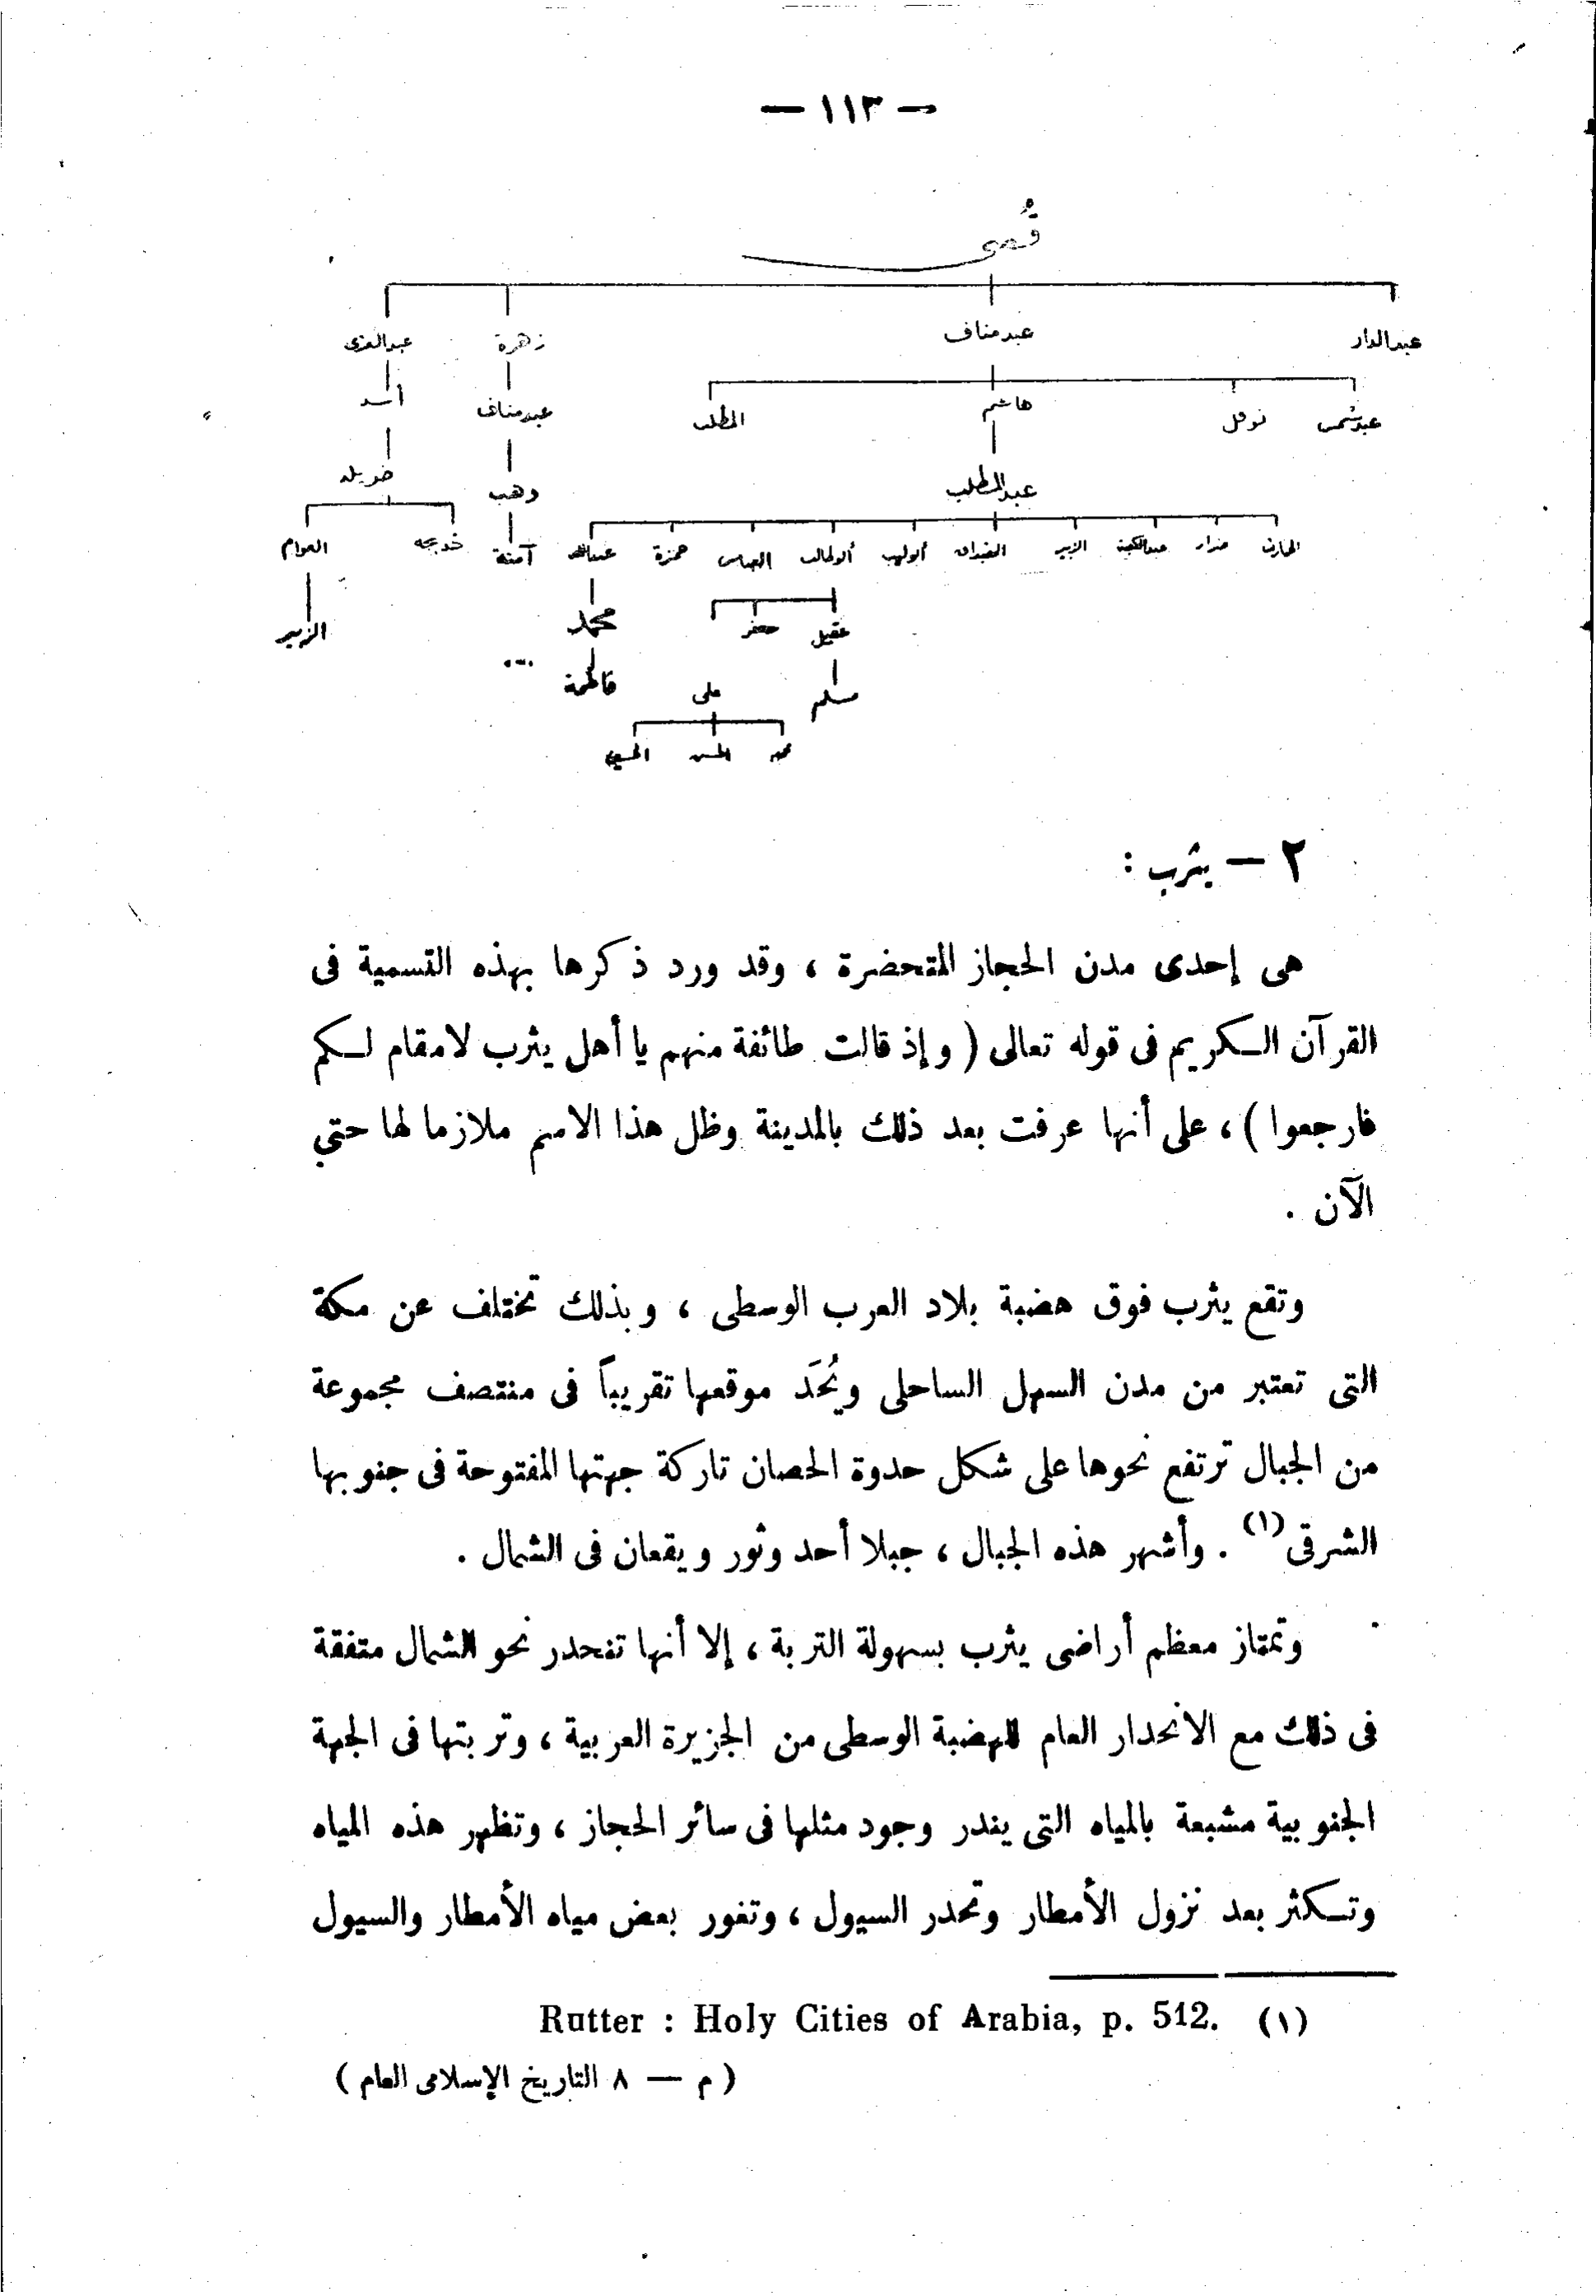 — ١١٣ —
قُصى
عبدالدار عبدمناف زهرة عبدالعزى
عبدشمس نوفل هاشم المطلب عبدمناف أسد
عبدالمطلب وهب خويلد
الحارث ضرار عبدالكعبة الزبير الغيداق أبولهب أبوطالب العباس حمزة عبدالله آمنة خديجه العوام
عقيل جعفر محمد الزبير
مسلم على فاطمة ...
محمد الحسن الحسين
٢ — يثرب :
هى إحدى مدن الحجاز المتحضرة ، وقد ورد ذكرها بهذه التسمية فى
القرآن الكريم فى قوله تعالى ( وإذ قالت طائفة منهم يا أهل يثرب لامقام لكم
فارجعوا ) ، على أنها عرفت بعد ذلك بالمدينة وظل هذا الاسم ملازما لها حتى
الآن .
وتقع يثرب فوق هضبة بلاد العرب الوسطى ، وبذلك تختلف عن مكة
التى تعتبر من مدن السهل الساحلى ويُحَد موقعها تقريباً فى منتصف مجموعة
من الجبال ترتفع نحوها على شكل حدوة الحصان تاركة جهتها المفتوحة فى جنوبها
الشرقى (١) . وأشهر هذه الجبال ، جبلا أحد وثور ويقعان فى الشمال .
وتمتاز معظم أراضى يثرب بسهولة التربة ، إلا أنها تنحدر نحو الشمال متفقة
فى ذلك مع الانحدار العام للهضبة الوسطى من الجزيرة العربية ، وتربتها فى الجهة
الجنوبية مشبعة بالمياه التى يندر وجود مثلها فى سائر الحجاز ، وتظهر هذه المياه
وتكثر بعد نزول الأمطار وتحدر السيول ، وتغور بعض مياه الأمطار والسيول
(١) Rutter : Holy Cities of Arabia, p. 512.
( م — ٨ التاريخ الإسلامى العام )